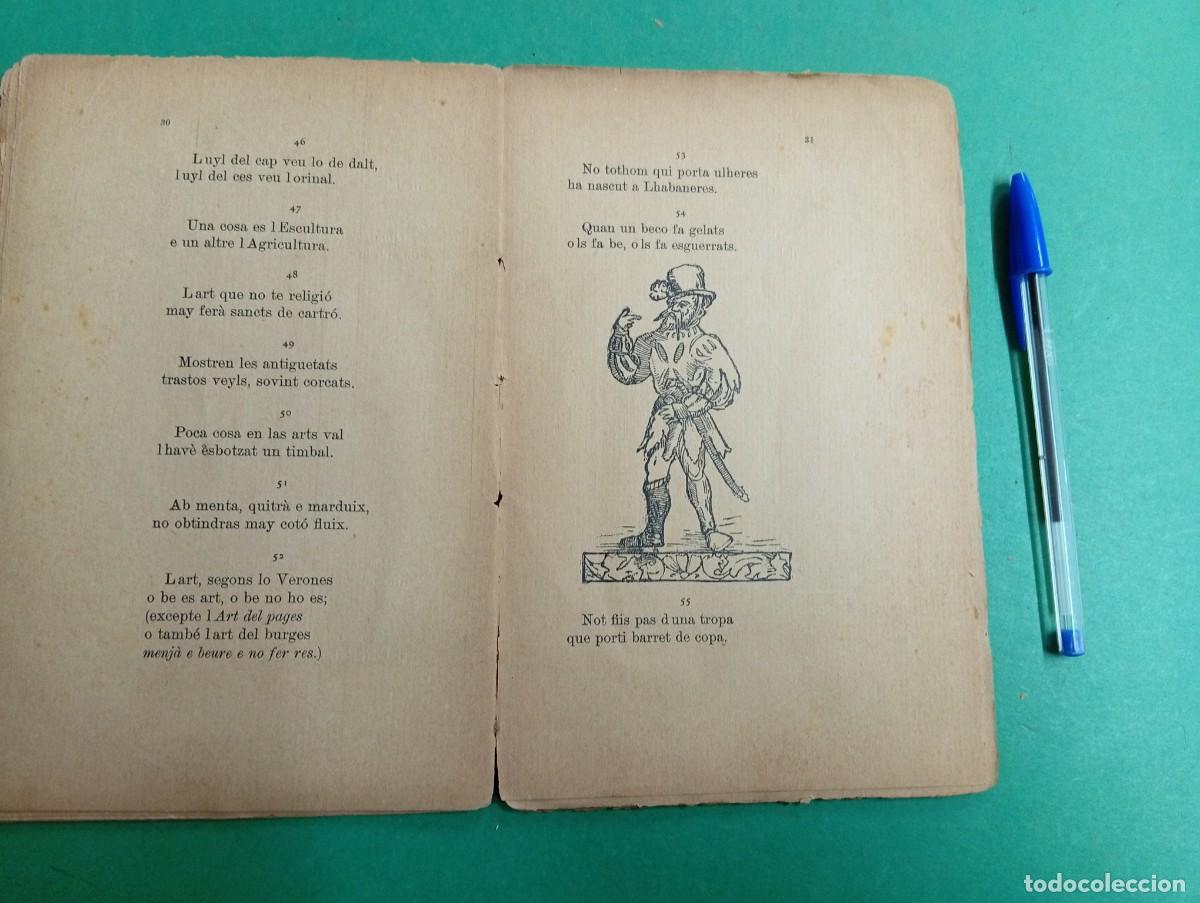 30
46
Luyl del cap veu lo de dalt,
luyl del ces veu lorinal.
47
Una cosa es lEscultura
e un altre lAgricultura.
48
Lart que no te religió
may ferà sancts de cartró.
49
Mostren les antiguetats
trastos veyls, sovint corcats.
50
Poca cosa en las arts val
lhavè èsbotzat un timbal.
51
Ab menta, quitrà e marduix,
no obtindras may cotó fluix.
52
Lart, segons lo Verones
o be es art, o be no ho es;
(excepte lArt del pages
o també lart del burges
menjà e beure e no fer res.)
31
53
No tothom qui porta ulheres
ha nascut a Lhabaneres.
54
Quan un beco fa gelats
o ls fa be, o ls fa esguerrats.
55
Not fiis pas duna tropa
que porti barret de copa.
todocoleccion